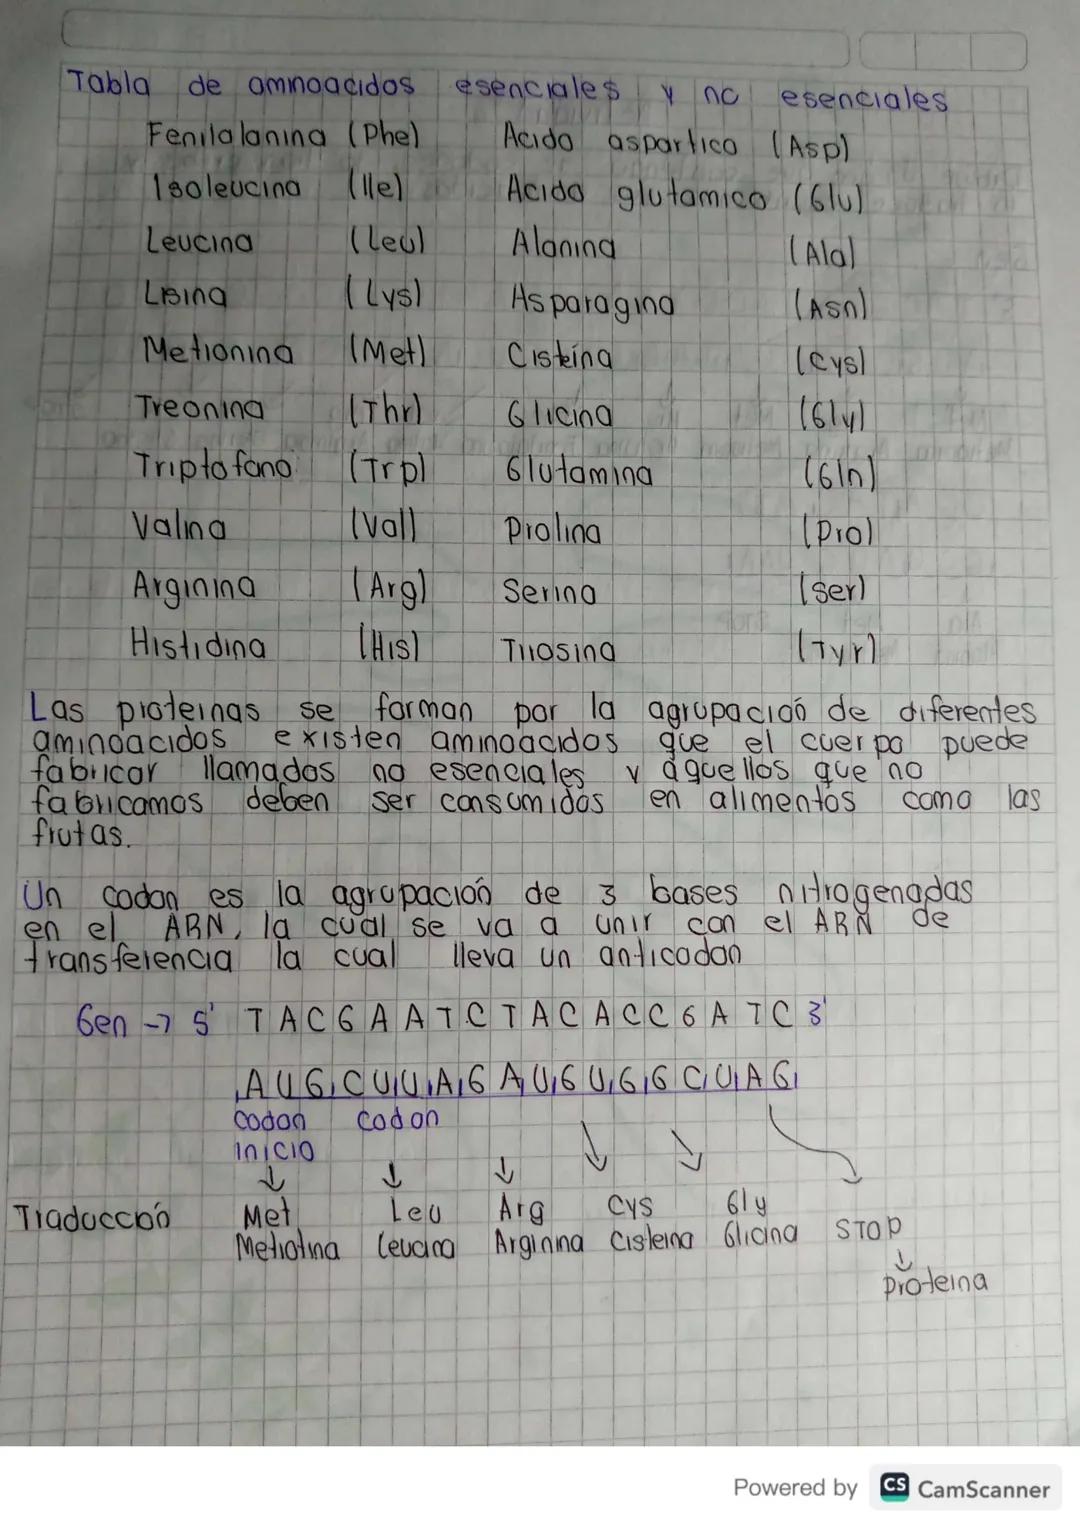 Tabla de amnoacidos esenciales y no esenciales
Fenilalanina (Phe) Acido aspartico (Asp)
Isoleucina (Ile) Acido glutamico (Glu)
Leucina (Leu) Alanina (Ala)
Lisina (Lys) Asparagina (Asn)
Metionina (Met) Cisteína (Cys)
Treonina (Thr) Glicina (Gly)
Triptofano (Trp) Glutamina (Gln)
Valina (Val) Prolina (Pro)
Arginina (Arg) Serina (Ser)
Histidina (His) Tirosina (Tyr)
Las proteinas se forman por la agrupación de diferentes
aminoacidos existen aminoacidos que el cuerpo puede
fabricar llamados no esenciales y aquellos que no
fabricamos deben ser consumidos en alimentos como las
frutas.
Un codon es la agrupación de 3 bases nitrogenadas
en el ARN, la cual se va a unir con el ARN de
transferencia la cual lleva un anticodon
Gen → 5' TACGAATCTACACCGATC 3'
AUG CUU AGAUGUGGCUAG
codon codon
inicio
Traducción Met Leu Arg Cys Gly
Metiotina Leucina Arginina Cisteina Glicina STOP
proteina
Powered by CS CamScanner